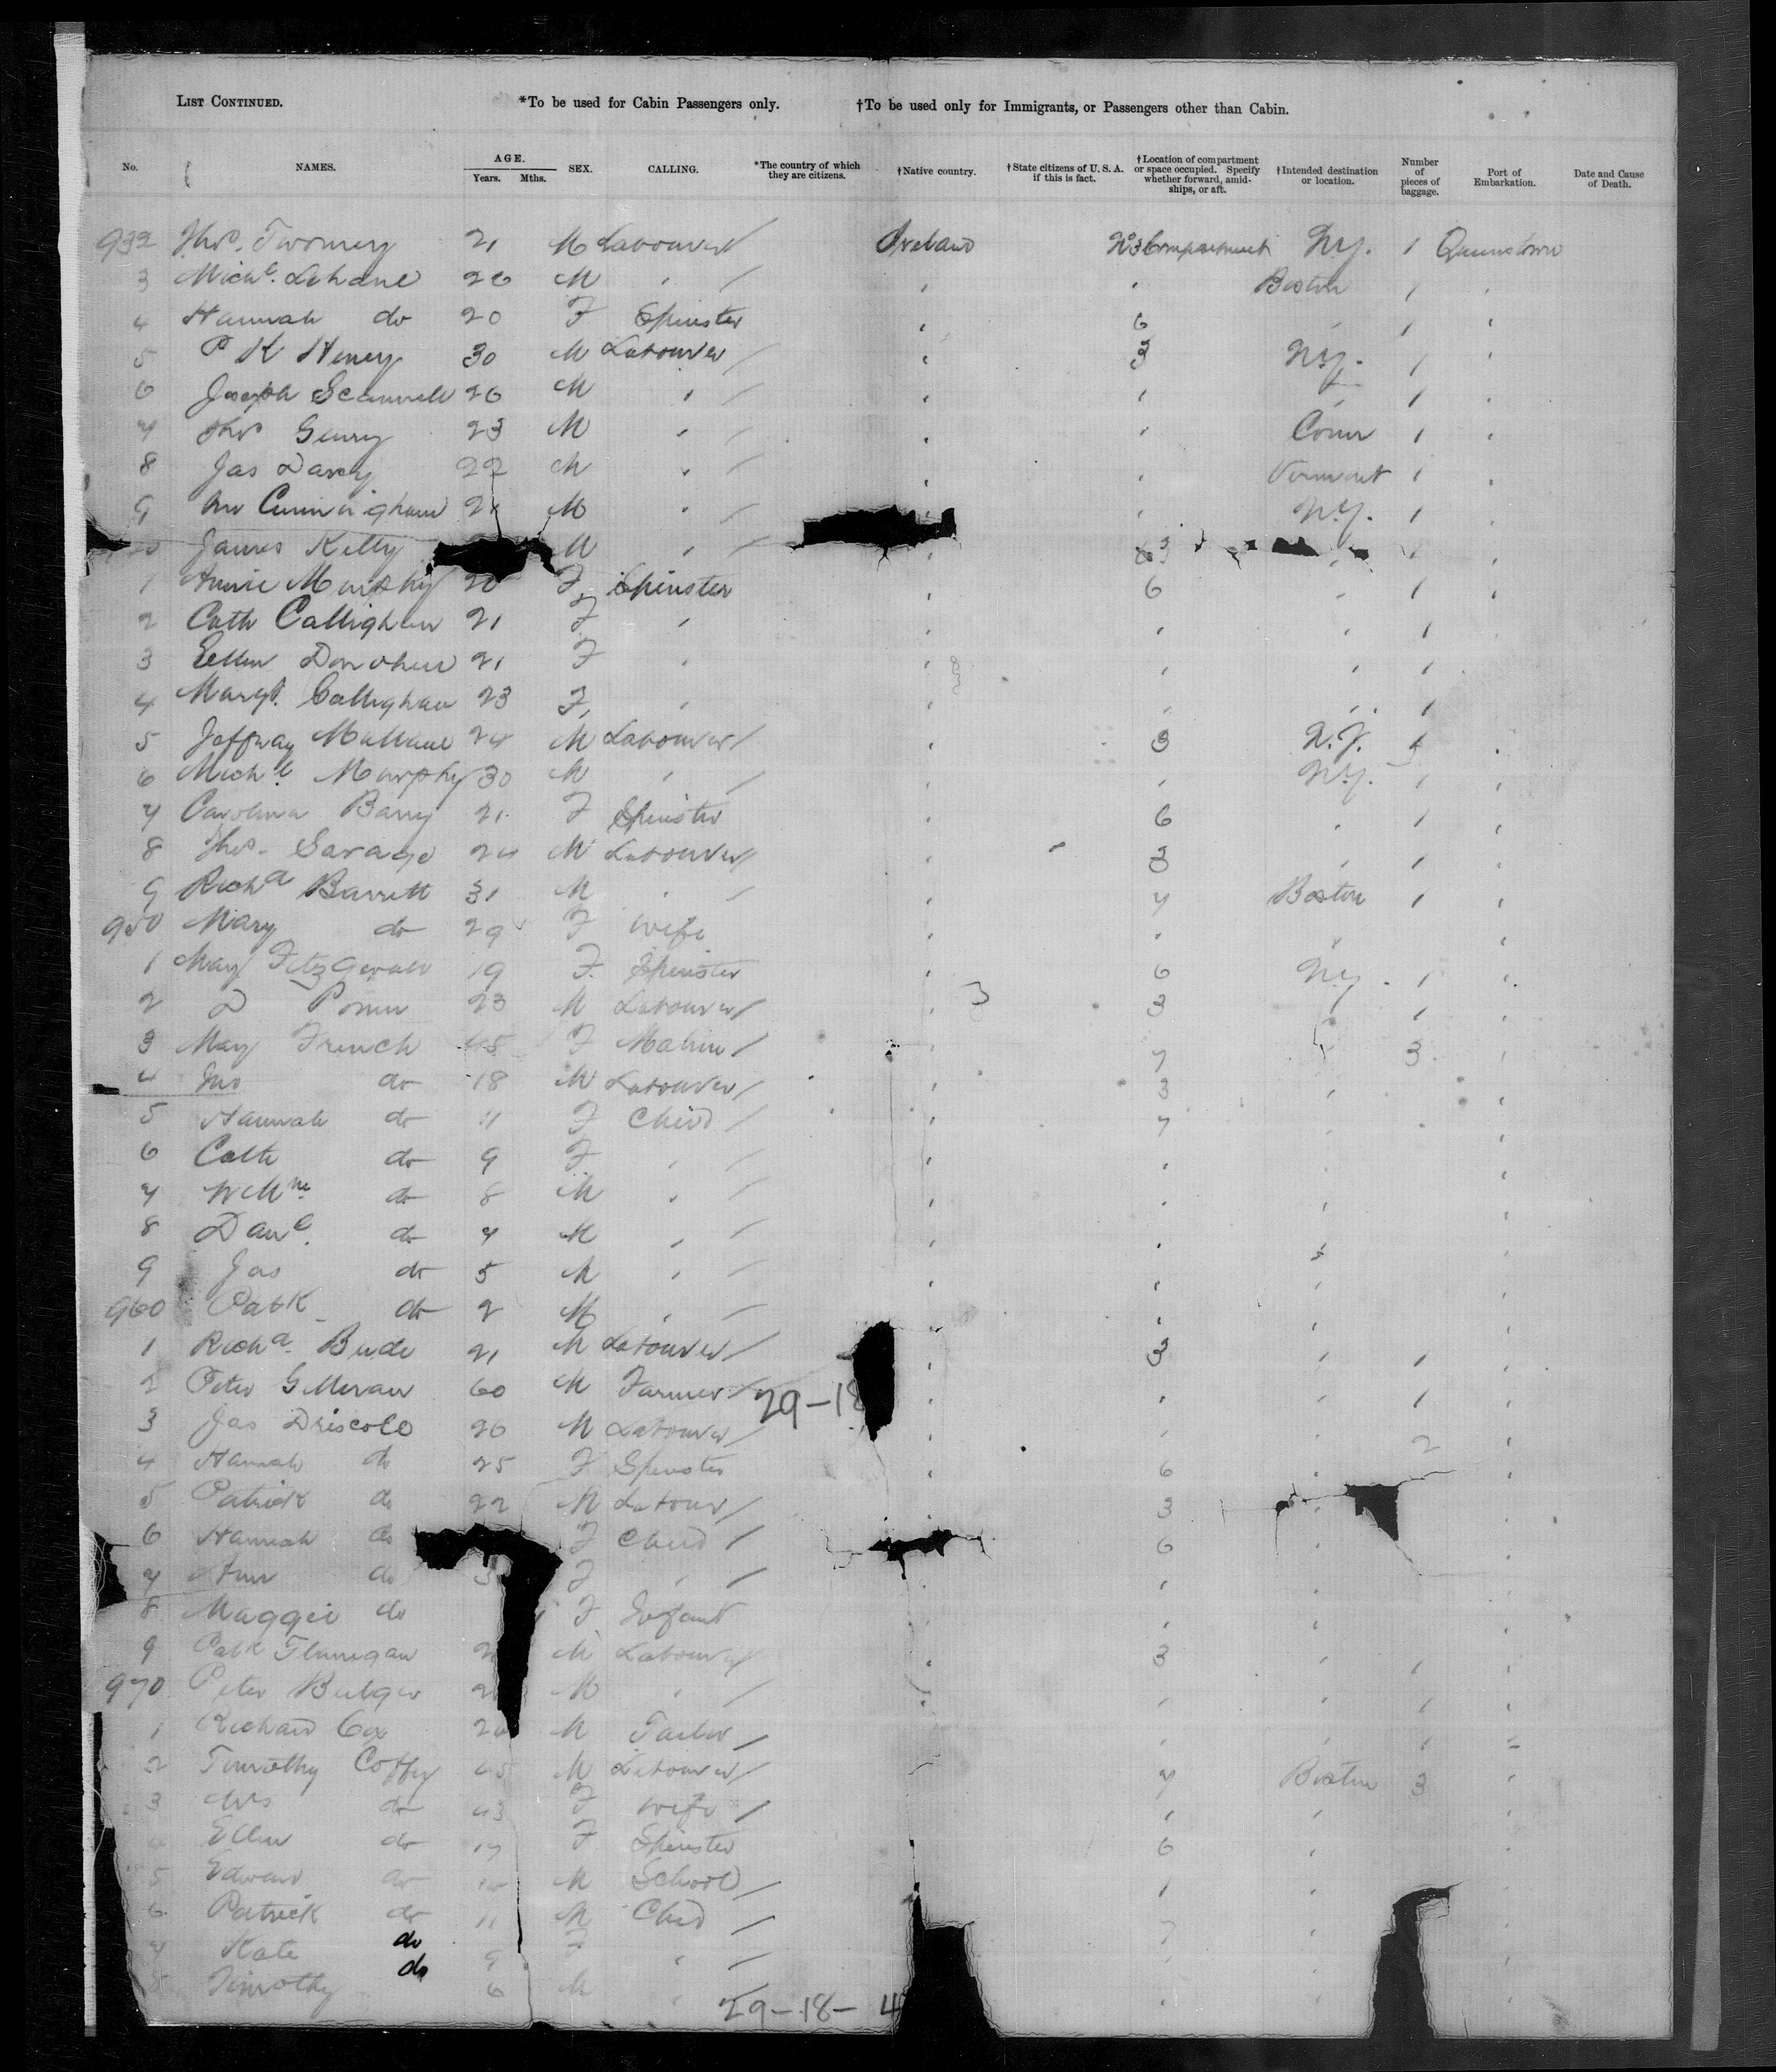 LIST CONTINUED. *To be used for Cabin Passengers only. †To be used only for Immigrants, or Passengers other than Cabin.
No. NAMES. AGE. Years. Mths. SEX. CALLING. *The country of which they are citizens. †Native country. †State citizens of U. S. A. if this is fact. †Location of compartment or space occupied. Specify whether forward, amidships, or aft. †Intended destination or location. Number of pieces of baggage. Port of Embarkation. Date and Cause of Death.
932 Thos. Twomey 21 M Labourer / Ireland No 3 Compartment N.Y. 1 Queenstown
3 Michl. Lehane 26 M " / " " Boston 1 "
4 Hannah do 20 F Spinster " 6 " 1 "
5 P K Henry 30 M Labourer / " 3 N.Y. 1 "
6 Joseph Scannell 26 M " / " " " 1 "
7 Thos Geary 23 M " / " " Conn 1 "
8 Jas Darcy 22 M " / " " Vermont 1 "
9 Jno Cunningham 21 M " / " N.Y. 1 "
James Kelly M " / " 3 " 1 "
1 Annie Murphy 20 F. Spinster " 6 " 1 "
2 Cath Callighan 21 F " " " " 1
3 Ellen Donohue 21 F " " " " 1
4 Margt. Callighan 23 F, " " " " 1
5 Mullane 24 M Labourer / " 3 N.J. 1 "
6 Michl. Murphy 30 M " / " N.Y. 1 "
7 Carolina Barry 21 F Spinster " 6 " 1 "
8 Thos. Savage 24 M Labourer / " 3 " 1 "
9 Richd Barrett 31 M " / " 7 Boston 1 "
950 Mary do 29 F Wife " " " "
1 Mary FitzGerald 19 F. Spinster " 6 N.Y. 1 "
2 D Power 23 M Labourer / " 3 3 " 1 "
3 Mary French 45 F / " 7 " 3 "
4 Jno do 18 M Labourer / " 3 " "
5 Hannah do 11 F Child / " 7 " "
6 Cath do 9 F " / " " "
7 do 8 M " / " " " "
8 Danl. do 7 M " / " " " "
9 Jas do 5 M " / " " " "
960 Patk do 2 M " / " " " "
1 Richd. Bude 21 M Labourer / " 3 " 1 "
2 Peter Gilleran 60 M Farmer / 29-18 " " 1 "
3 Jas Driscoll 26 M Labourer / " " " 2 "
4 Hannah do 25 F Spinster " 6 " "
5 Patrick do 22 M Labour / " 3 " "
6 Hannah do F Child / 6 " "
7 Ann do 3 F " / " " "
8 Maggie do F Infant " " " "
9 Patk Flannigan M Labourer / " 3 " 1 "
970 Peter Bulger M " / " " " 1 "
1 Richard Cox M Tailor / " " 1 "
2 Timothy Coffey 45 M Labourer / 7 Boston 3 "
3 Mrs do 43 F Wife / " " "
4 Ellen do 17 F Spinster 6 "
5 Edward do M School / " "
6 Patrick do 11 M Child / 7 "
7 Kate do 9 F " / " "
8 Timothy do 6 M " / " "
29-18-4